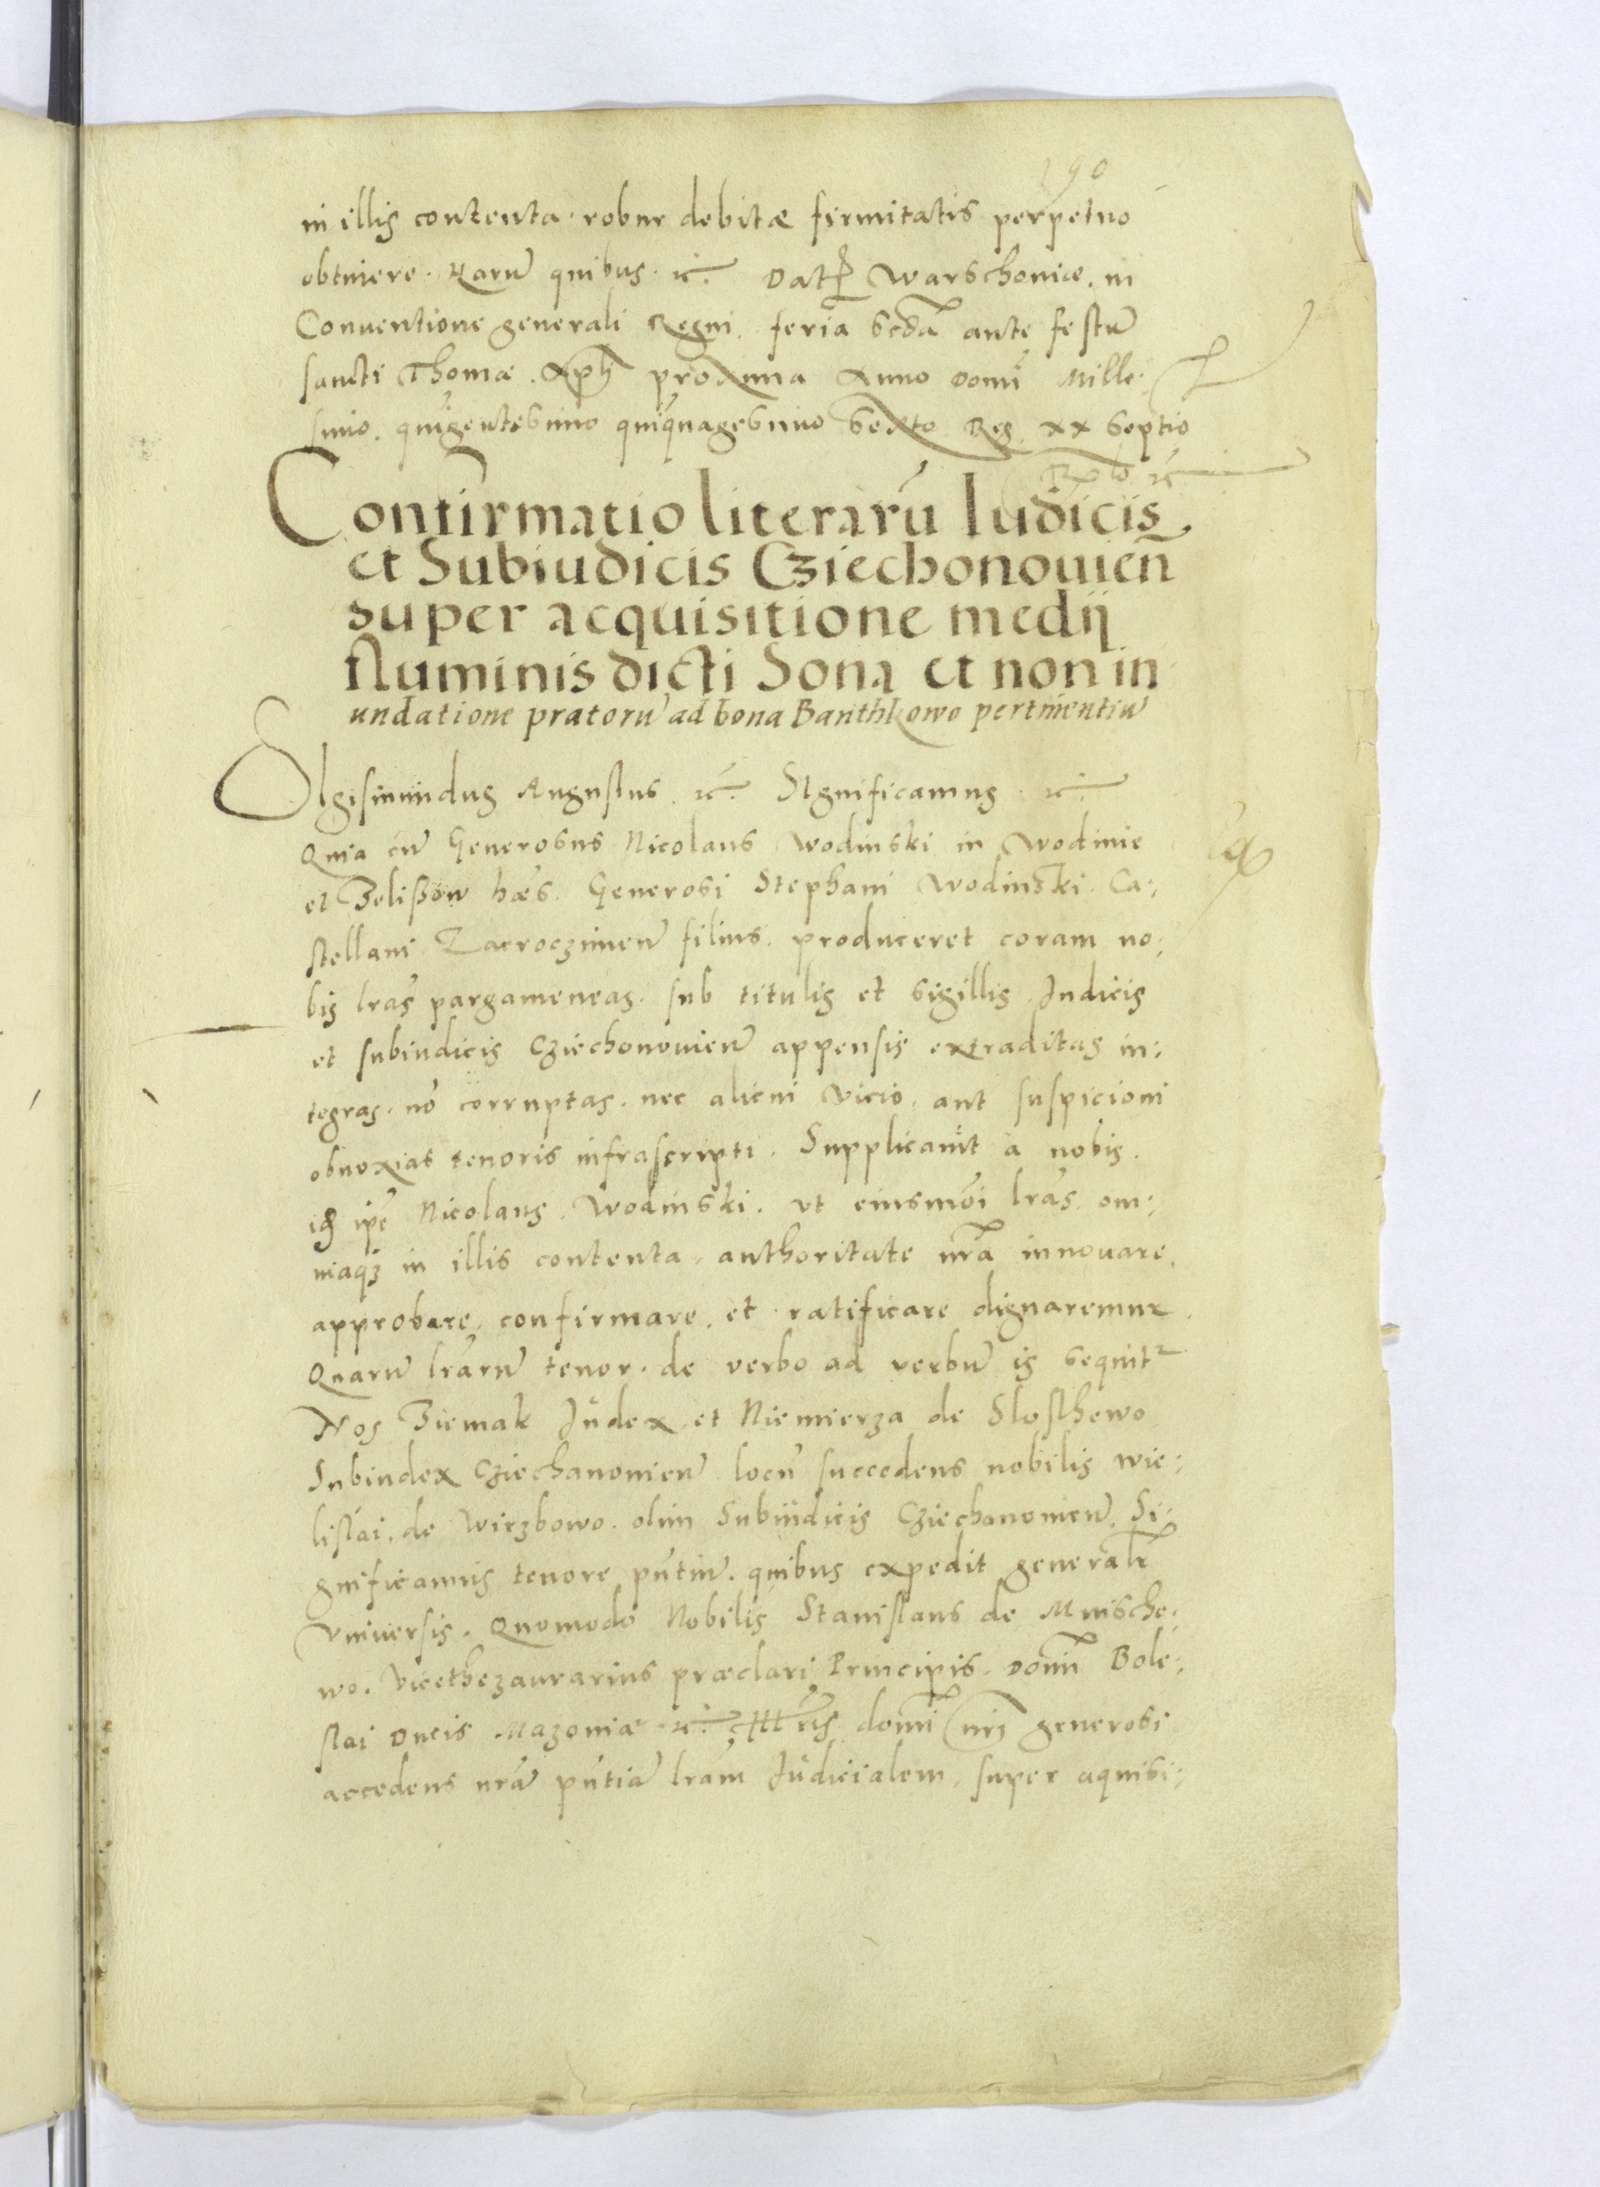 190
in illis contenta. robur debitæ firmitatis perpetuo
obtinere. Harū quibus. ic. Dat Warschoniæ. in
Conuentione generali Regni. feria scda ante festū
sancti Thomæ. Apli proxima Anno Domi Mille-
simo. quigentesimo quiquagesimo sexto Reg. xx septio
Confirmatio literarū Iudicis
et Subiudicis Cziechonouień
super acquisitione medij
fluminis dicti Sona et non in
undatione pratorū ad bona Banthkowo pertinentiū
SIgismundus Augustus. ic. SIgnificamus. ic.
Quia cū Generosus Nicolaus Wodinski in Wodinie
et Zelissow hæs. Generosi Stephani Wodinski. Ca-
stellani Zacroczimen̄ filius. produceret coram no-
bis lras pargameneas. sub titulis et sigillis Judicis
et subiudicis Cziechonouien̄ appensis extraditas in-
tegras. nō corruptas. nec alicui vicio. aut suspicioni
obnoxias tenoris infrascripti. Supplicauit a nobis.
idē ipē Nicolaus. Wodinski. vt eiusmōi lras. om-
niaqȝ in illis contenta. authoritate nrā innouare.
approbare. confirmare. et ratificare dignaremur.
Quarū lrarū tenor. de verbo ad verbū is sequit
Nos Ziemak Judex et Niemierza de Slosthewo
Subiudex Cziechanouien̄ locū succedens nobilis Wie-
lislai. de Wirzbowo. olim Subiudicis Cziechanouien̄. Si-
gnificamus tenore pñtiū. quibus expedit generalr
vniuersis. Quomodo Nobilis Stanislaus de Mnische-
wo. Vicethezaurarius præclari Principis. Domī Bole-
slai Ducis Mazoniæ ic. domī nri generosi
accedens nrā pñtiā lram Judicialem. super aquisi-